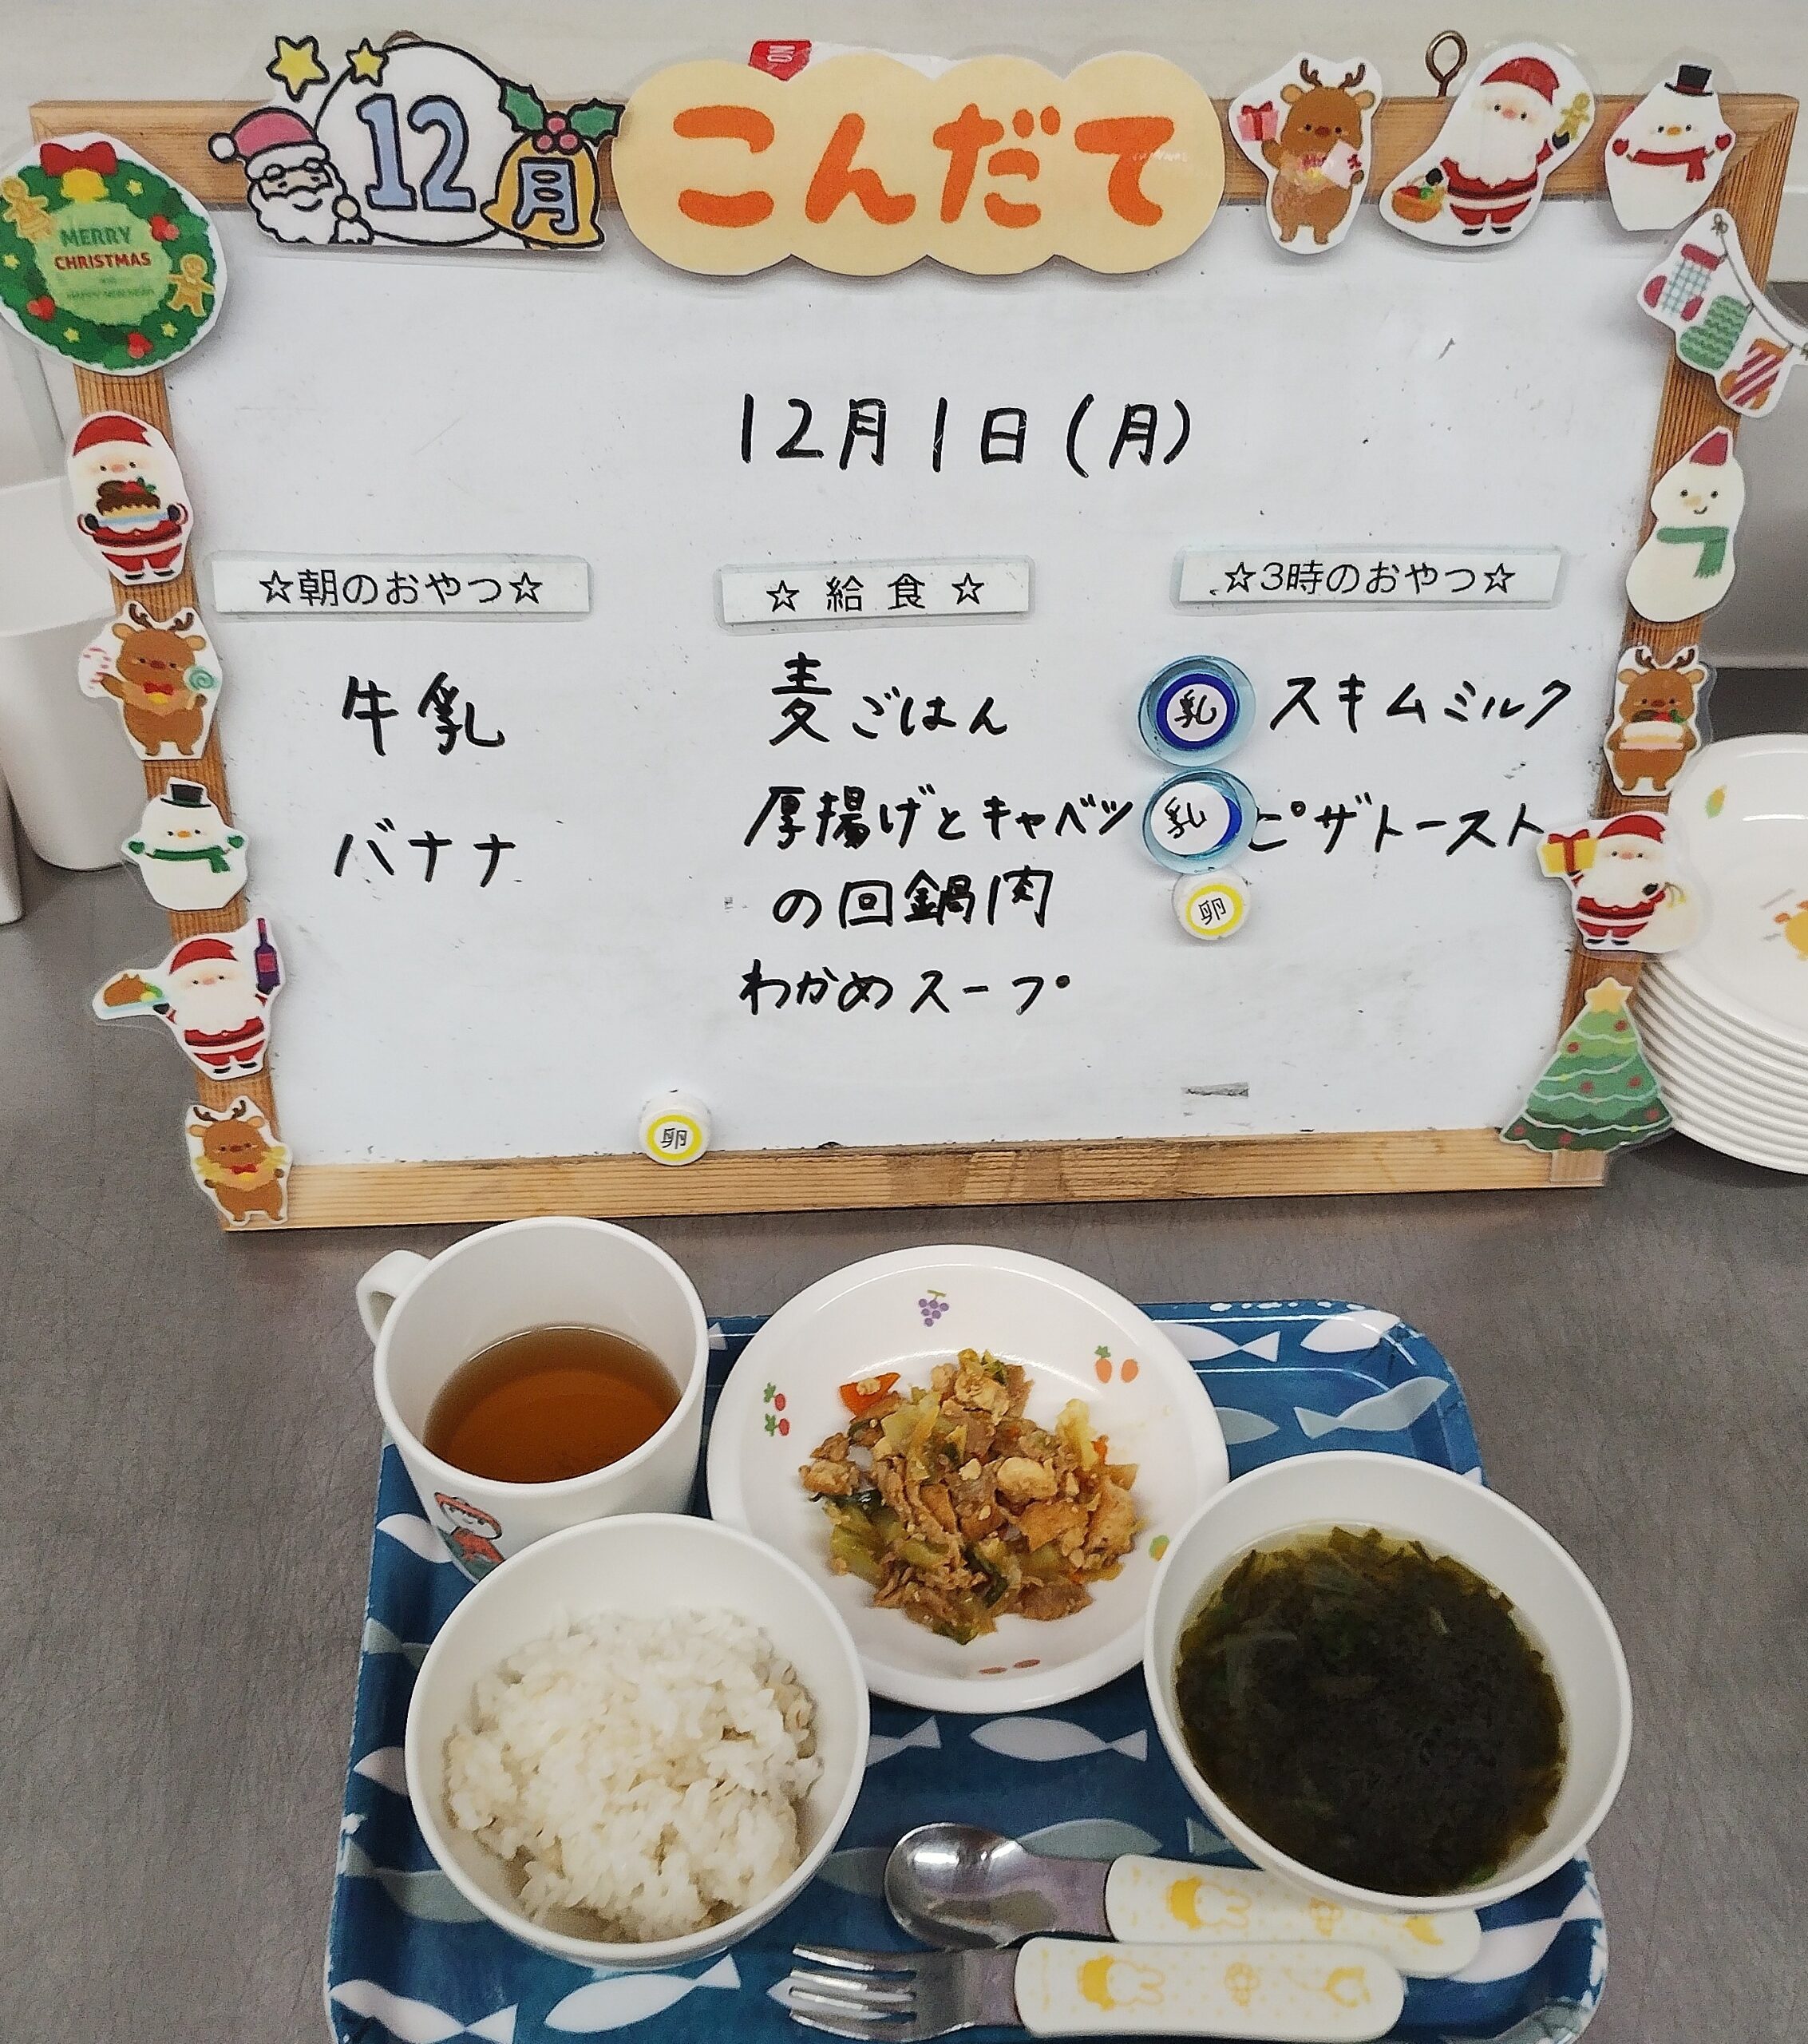 12月
こんだて
MERRY
CHRISTMAS
12月1日(月)
☆朝のおやつ☆
牛乳
バナナ
☆ 給 食 ☆
麦ごはん
厚揚げとキャベツ
の回鍋肉
わかめスープ
☆3時のおやつ☆
乳 スキムミルク
乳 ピザトースト
卵
卵